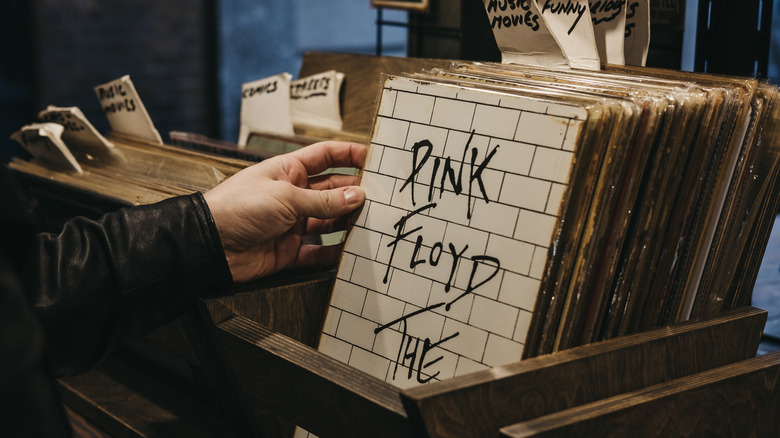 MUSIC
MOVIES
FUNNY
COMICS
MUSIC
MOVIES
PINK
FLOYD
THE